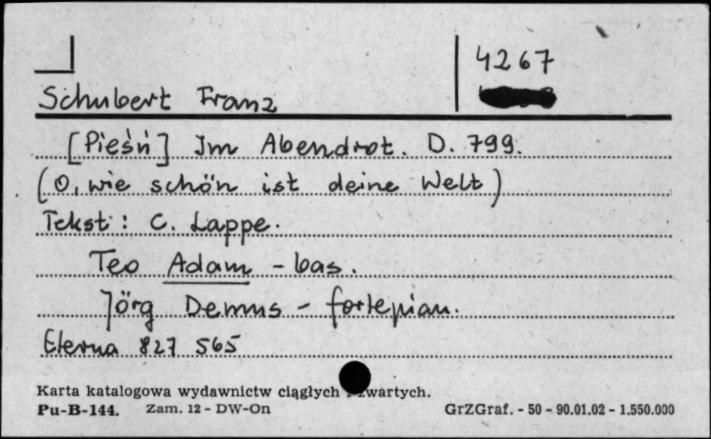 4267
Schubert Franz
[Pieśń] Im Abendrot. D. 799.
(O, wie schön ist deine Welt)
Tekst: C. Lappe.
Teo Adam - bas.
Jörg Demus - fortepian.
Eterna 827 565
Karta katalogowa wydawnictw ciągłych i zwartych.
Pu-B-144. Zam. 12 - DW-On GrZGraf. - 50 - 90.01.02 - 1.550.000